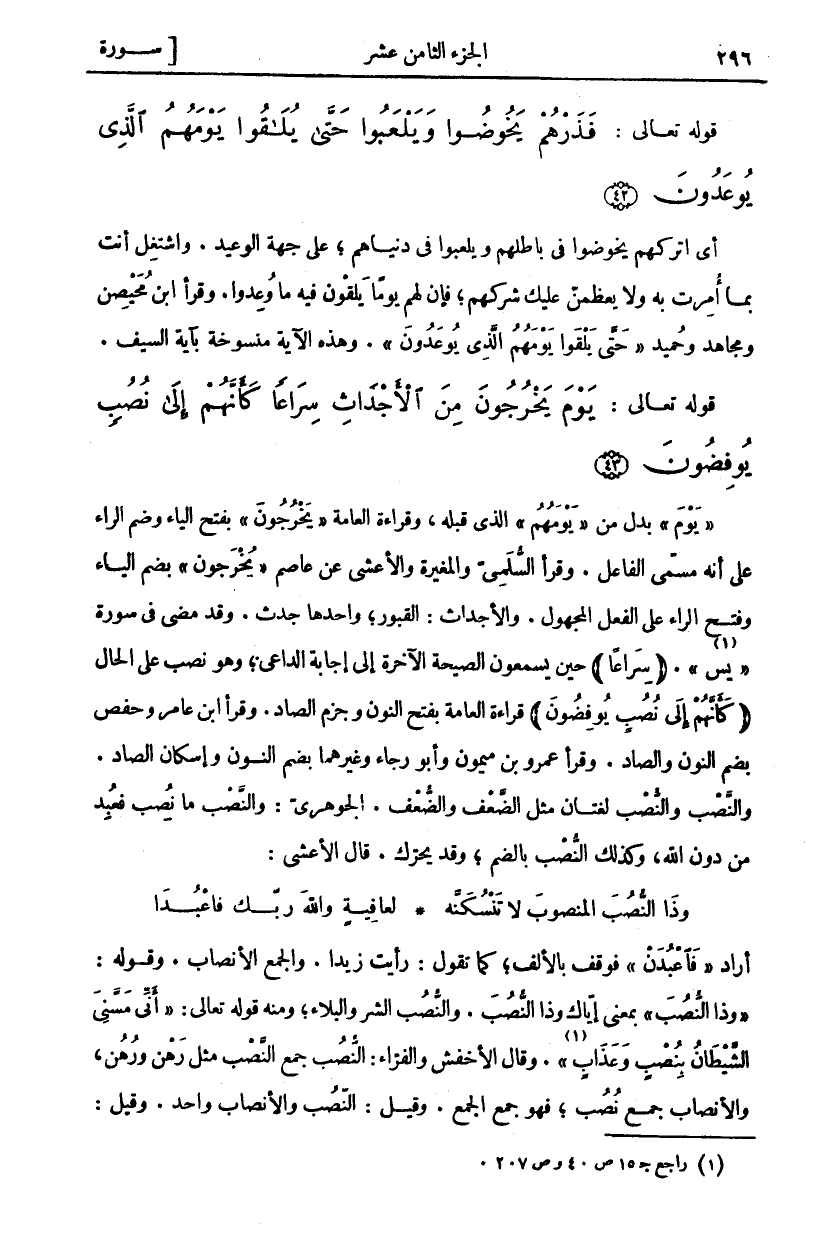 ٢٩٦ الجزء الثامن عشر [ ســورة
قوله تعـالى : فَذَرْهُمْ يَخُوضُـوا وَيَلْعَبُوا حَتَّىٰ يُلَـٰقُوا يَوْمَهُـمُ ٱلَّذِى
يُوعَدُونَ ۝٤٢
أى اتركهم يخوضوا فى باطلهم ويلعبوا فى دنياهم ؛ على جهة الوعيد . واشتغل أنت
بمـا أُمِرت به ولا يعظمنّ عليك شركهم ؛ فإن لهم يومًا يَلقَوْن فيه ما وُعِدوا. وقرأ ابن مُحَيْصِن
ومجاهد وحُميد « حَتَّى يَلْقَوا يَوْمَهُمُ الَّذِى يُوعَدُونَ » . وهذه الآية منسوخة بآية السيف .
قوله تعـالى : يَوْمَ يَخْرُجُونَ مِنَ ٱلْأَجْدَاثِ سِرَاعًا كَأَنَّهُمْ إِلَىٰ نُصُبٍ
يُوفِضُونَ ۝٤٣
« يَوْمَ » بدل من « يَوْمَهُم » الذى قبله ، وقراءة العامة « يَخْرُجُونَ » بفتح الياء وضم الراء
على أنه مسمّى الفاعل . وقرأ السُّلَمِىّ والمغيرة والأعشى عن عاصم « يُخْرَجون » بضم اليـاء
وفتـح الراء على الفعل المجهول . والأجداث : القبور؛ واحدها جدث . وقد مضى فى سورة
« يس » (١) . ﴿ سِرَاعًا ﴾ حين يسمعون الصيحة الآخرة إلى إجابة الداعى ؛ وهو نصب على الحال
﴿ كَأَنَّهُمْ إِلَى نُصُبٍ يُوفِضُونَ ﴾ قراءة العامة بفتح النون وجزم الصاد. وقرأ ابن عامر وحفص
بضم النون والصاد . وقرأ عمرو بن ميمون وأبو رجاء وغيرهما بضم النـون وإسكان الصاد .
والنَّصْب والنُّصْب لغتـان مثل الضَّعْف والضُّعْف . الجوهرىّ : والنَّصْب ما نُصِب فعُبِد
من دون الله، وكذلك النُّصْب بالضم ؛ وقد يحرّك . قال الأعشى :
وذَا النُّصُبَ المنصوبَ لا تَنْسُكَنَّه * لعافيـةٍ واللهَ ربّـك فاعْبُـدَا
أراد « فَٱعْبُدَنْ » فوقف بالألف؛ كما تقول : رأيت زيدا . والجمع الأنصاب . وقـوله :
«وذا النُّصُبَ» بمعنى إيّاك وذا النُّصُبَ . والنُّصُب الشر والبلاء؛ ومنه قوله تعالى: « أَنِّى مَسَّنِىَ
الشَّيْطَانُ بِنُصْبٍ وَعَذَابٍ » (١) . وقال الأخفش والفرّاء: النُّصُب جمع النَّصْب مثل رَهْن ورُهُن،
والأنصاب جمـع نُصُب ؛ فهو جمع الجمع . وقيـل : النُّصُب والأنصاب واحد . وقيل :
(١) راجع جـ ١٥ ص ٤٠ و ص ٢٠٧ .